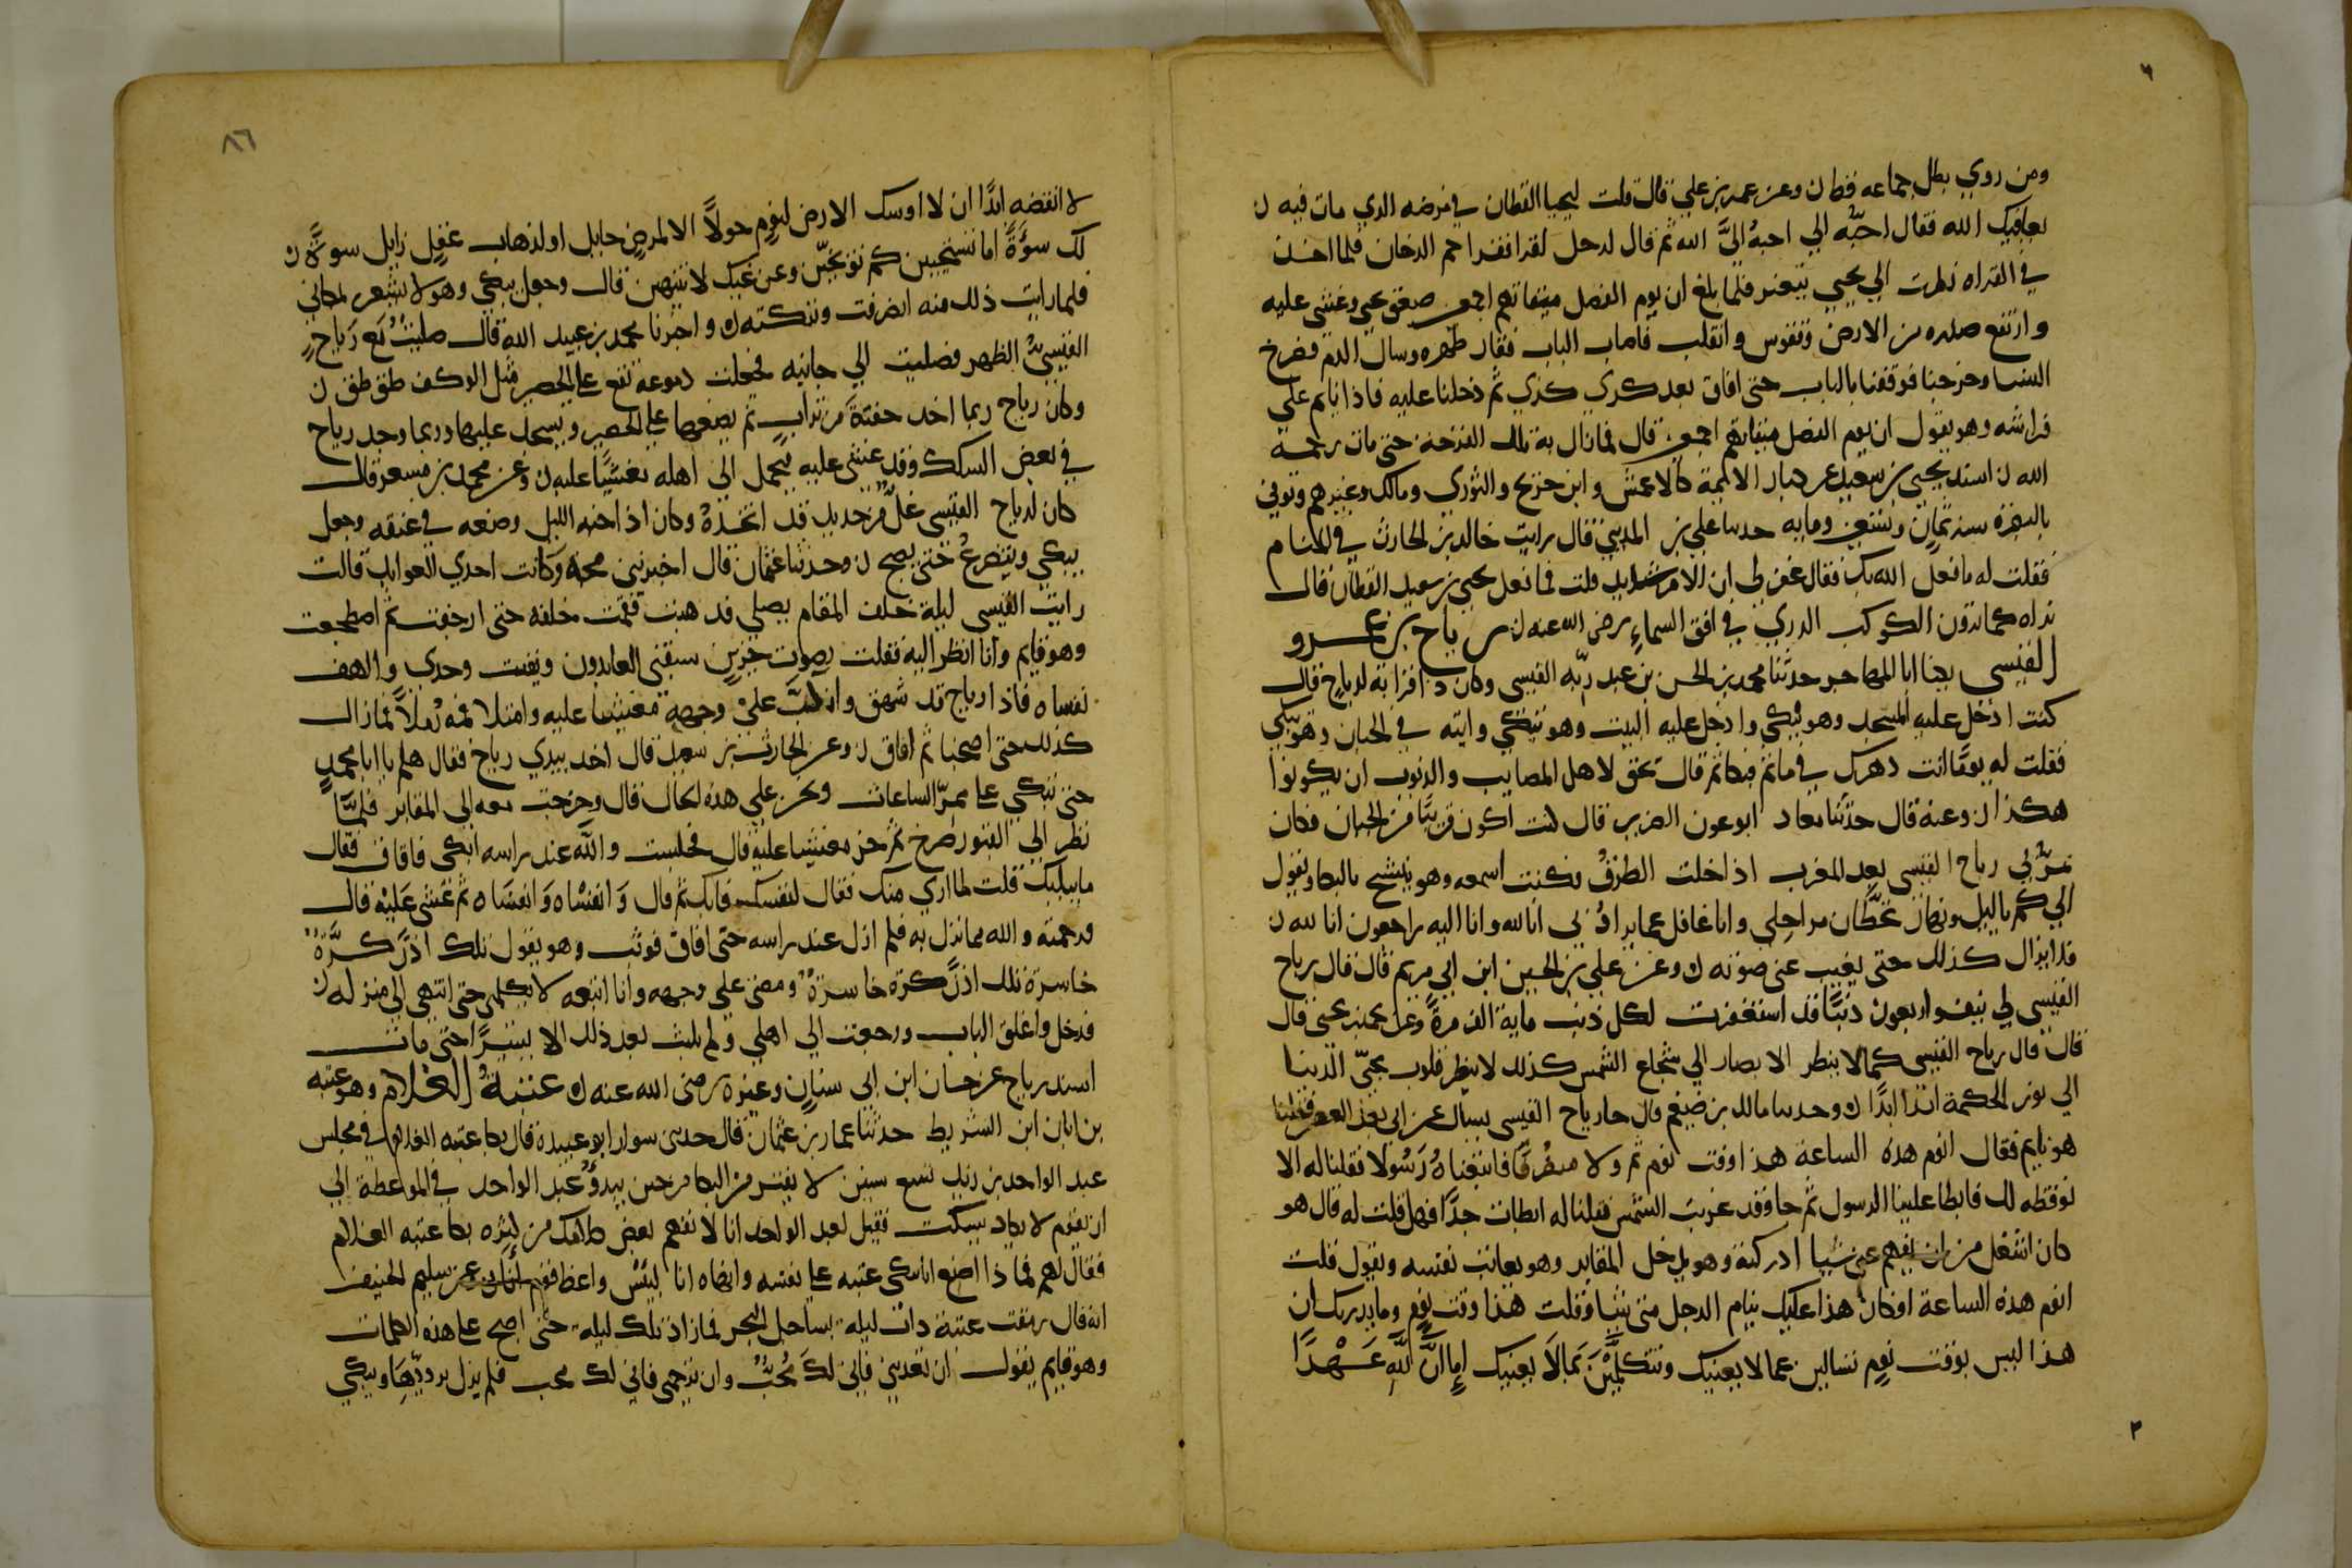 ٦
ومن روي بطل جماعه قط ن وعن عمرو بن علي قال قلت ليحيا القطان في مرضه الذي مات فيه ن
يعافيك الله فقال احبّه الي احبهُ اليَّ الله ثم قال لرجل اقرا فقرا حم الدخان فلما اخذ
في القراه نظرت الي يحيي يتغير فلما بلغ ان يوم الفصل ميقاتهم اجمعين صعق يحيي وغشي عليه
وارتفع صدره من الارض وتقوس وانقلب فاصاب الباب فقار ظهره وسال الدم فصرخ
النسا وخرجنا فوقفنا بالباب حتى افاق بعد كذي كذي ثم دخلنا عليه فاذا نايم علي
فراشه وهو يقول ان يوم الفصل ميقاتهم اجمعين قال فمازال به تلك القرحة حتى مات رحمه
الله ن اسند يحيى بن سعيد عن كبار الايمة كالاعمش وابن جريج والثوري ومالك وغيرهم وتوفي
بالبصرة سنه ثمان وتسعين ومايه حدثنا علي بن المديني قال رايت خالد بن الحارث في المنام
فقلت له ما فعل الله بك فقال غفر لي ان الامر شديد قلت فما فعل يحيي بن سعيد القطان قال
نراه كما ترون الكوكب الدري في افق السماءِ رضى الله عنه ن رياح بن عمرو
القيسى يكنا ابا المهاصر حدثنا محمد بن الحسن بن عبد ربّه القيسى وكان ذا قرابة لرياح قال
كنت ادخل عليه المسجد وهو يبكي وادخل عليه البيت وهو يبكي واتيه في الجبان وهو يبكي
فقلت له يومًا انت دهرك في ماتم فبكا ثم قال يحق لاهل المصايب والذنوب ان يكونوا
هكذا ن وعنه قال حدثنا معاذ ابو عون الضرير قال كنت اكون قريبًا من الجبان فكان
يمرُّ بي رياح القيسى بعد المغرب اذا خلت الطرقُ فكنت اسمعه وهو ينشج بالبكا ويقول
الي كم يا ليل ونهار تحطَّان من اجلي وانا غافل عما يراد بي انا لله وانا اليه راجعون انا لله ن
فلا يزال كذلك حتى يغيب عني صوته ن وعن علي بن الحسين ابن ابي مريم قال قال رياح
القيسى لي نيف واربعون ذنبًا قد استغفرت لكل ذنب ماية الف مرةً وعن يحيى قال
قال قال رياح القيسى كما لا ينظر الابصار الي شعاع الشمس كذلك لا ينظر قلوب محبّي الدنيا
الي نور الحكمة ابدًا ن وحدثنا مالك بن ضيغم قال جا رياح القيسى يسال عن ابي بعد العصر فقلنا
هو نايم فقال انوم هذه الساعة هذا وقت نوم ثم ولا منصرفًا فاتبعناهُ رَسُولا فقلنا له الا
نوقظه لك فابطا علينا الرسول ثم جا وقد غربت الشمس فقلنا له ابطات جدًّا فهل قلت له قال هو
كان اشغل من ان يفهم عني شيا ادركته وهو يدخل المقابر وهو يعاتب نفسه ويقول قلت
انوم هذه الساعة افكان هذا عليك ينام الرجل متى شا وقلت هذا وقت نومٍ وما يدريك ان
هذا ليس بوقت نومٍ تسالين عما لا يعنيك وتتكلمّين بما لا يعنيك اِما انَّ للهِ عَهْدًا
٢
٨٦
لا انقضه ابدًا ان لا اوسدك الارض لنومٍ حولاً الا لمرضٍ حايل او لذهاب عقلٍ زايل سوءَة ن
لك سوءَةً اما تستحيين كم توبّخين وعن غيّك لا تنتهين قال وجعل يبكي وهو لا يشعر بمكاني
فلما رايت ذلك منه انصرفت وتركته ن واخبرنا محمد بن عبيد الله قال صليتُ مع رَياحٍ
القيسيّ الظهر فصليت الي جانبه فجعلت دموعه تقع على الحصير مثل الوكف طق طق ن
وكان رياح ربما اخذ حفنةً من ترابٍ ثم يضعها على الحصير ويسجد عليها وربما وجد رياح
في بعض السكك وقد غشي عليه فيحمل الى اهله مغشيًا عليه ن وعن محمد بن مسعر قال
كان لرياح القيسى غلٌّ من حديد قد اتخذهُ وكان اذا جنه الليل وضعه في عنقه وجعل
يبكي ويتضرعُ حتى يصبح ن وحدثنا عثمان قال اخبرتني محة وكانت احدي العوابد قالت
رايت القيسى ليلة خلف المقام يصلي قد هبت فقمت خلفه حتى ارجفت ثم اضطجعت
وهو قايم وانا انظر اليه فقلت بصوت حزين سبقني العابدون وبقيت وحدي والهف
نفساه فاذا رياح قد شهق وانكبَّ على وجههِ مغشيا عليه وامتلا فمه رملاً فمازال
كذلك حتى اصبحنا ثم افاق ن وعن الحارث بن سعيد قال اخذ بيدي رياح فقال هلم يا ابا محمدٍ
حتى نبكي على ممرّ الساعات ونحن على هذه الحال قال وخرجت معه الى المقابر فلمَّا
نظر الي القبور صرخ ثم خر مغشيا عليه قال فجلست والله عند راسه ابكي فافاق فقال
ما يبكيك قلت لما اري منك فقال لنفسك فابك ثم قال وَانفسَاه وَانفسَاه ثم غُشى عَليْه قال
فرحمته والله مما نزل به فلم ازل عند راسه حتى افاق فوثب وهو يقول تلك اذن كرَّةٌ
خاسرة تلك اذن كرة خاسرةٌ ومضى على وجهه وانا اتبعه لا يكلمني حتى انتهى الى منزله ن
فدخل واغلق الباب ورجعت الي اهلي ولم يلبث بعد ذلك الا يسيرًا حتى مات
اسند رياح عن حسان ابن ابي سنانٍ وغيره رضى الله عنه ن عتبةُ الغلام وهو عتبه
بن ابان ابن الشريط حدثنا عمار بن عثمان قال حدثنى سوار ابو عبيدة قال بكا عتبه الغلام في مجلس
عبد الواحد بن زيد تسع سنين لا يفتر من البكا من حين يبدؤُ عبد الواحد في الموعظة الي
ان يقوم لا يكاد يسكت فقيل لعبد الواحد انا لا نفهم بعض كلامك من كثره بكا عتبه الغلام
فقال لهم فما ذا اصنع انا يبكى عتبه على نفسه وانهاه انا لبئس واعظ قومٍ انا ن وعن سليم الحنيف
انه قال رمقت عتبة ذات ليله بساحل البحر فمازاد تلك ليله حتى اصبح على هذه الكلمات
وهو قايم يقول ان تعذبني فانى لكَ مُحبٌ وان ترحمنى فاني لك محب فلم يزل يرددّها ويبكي